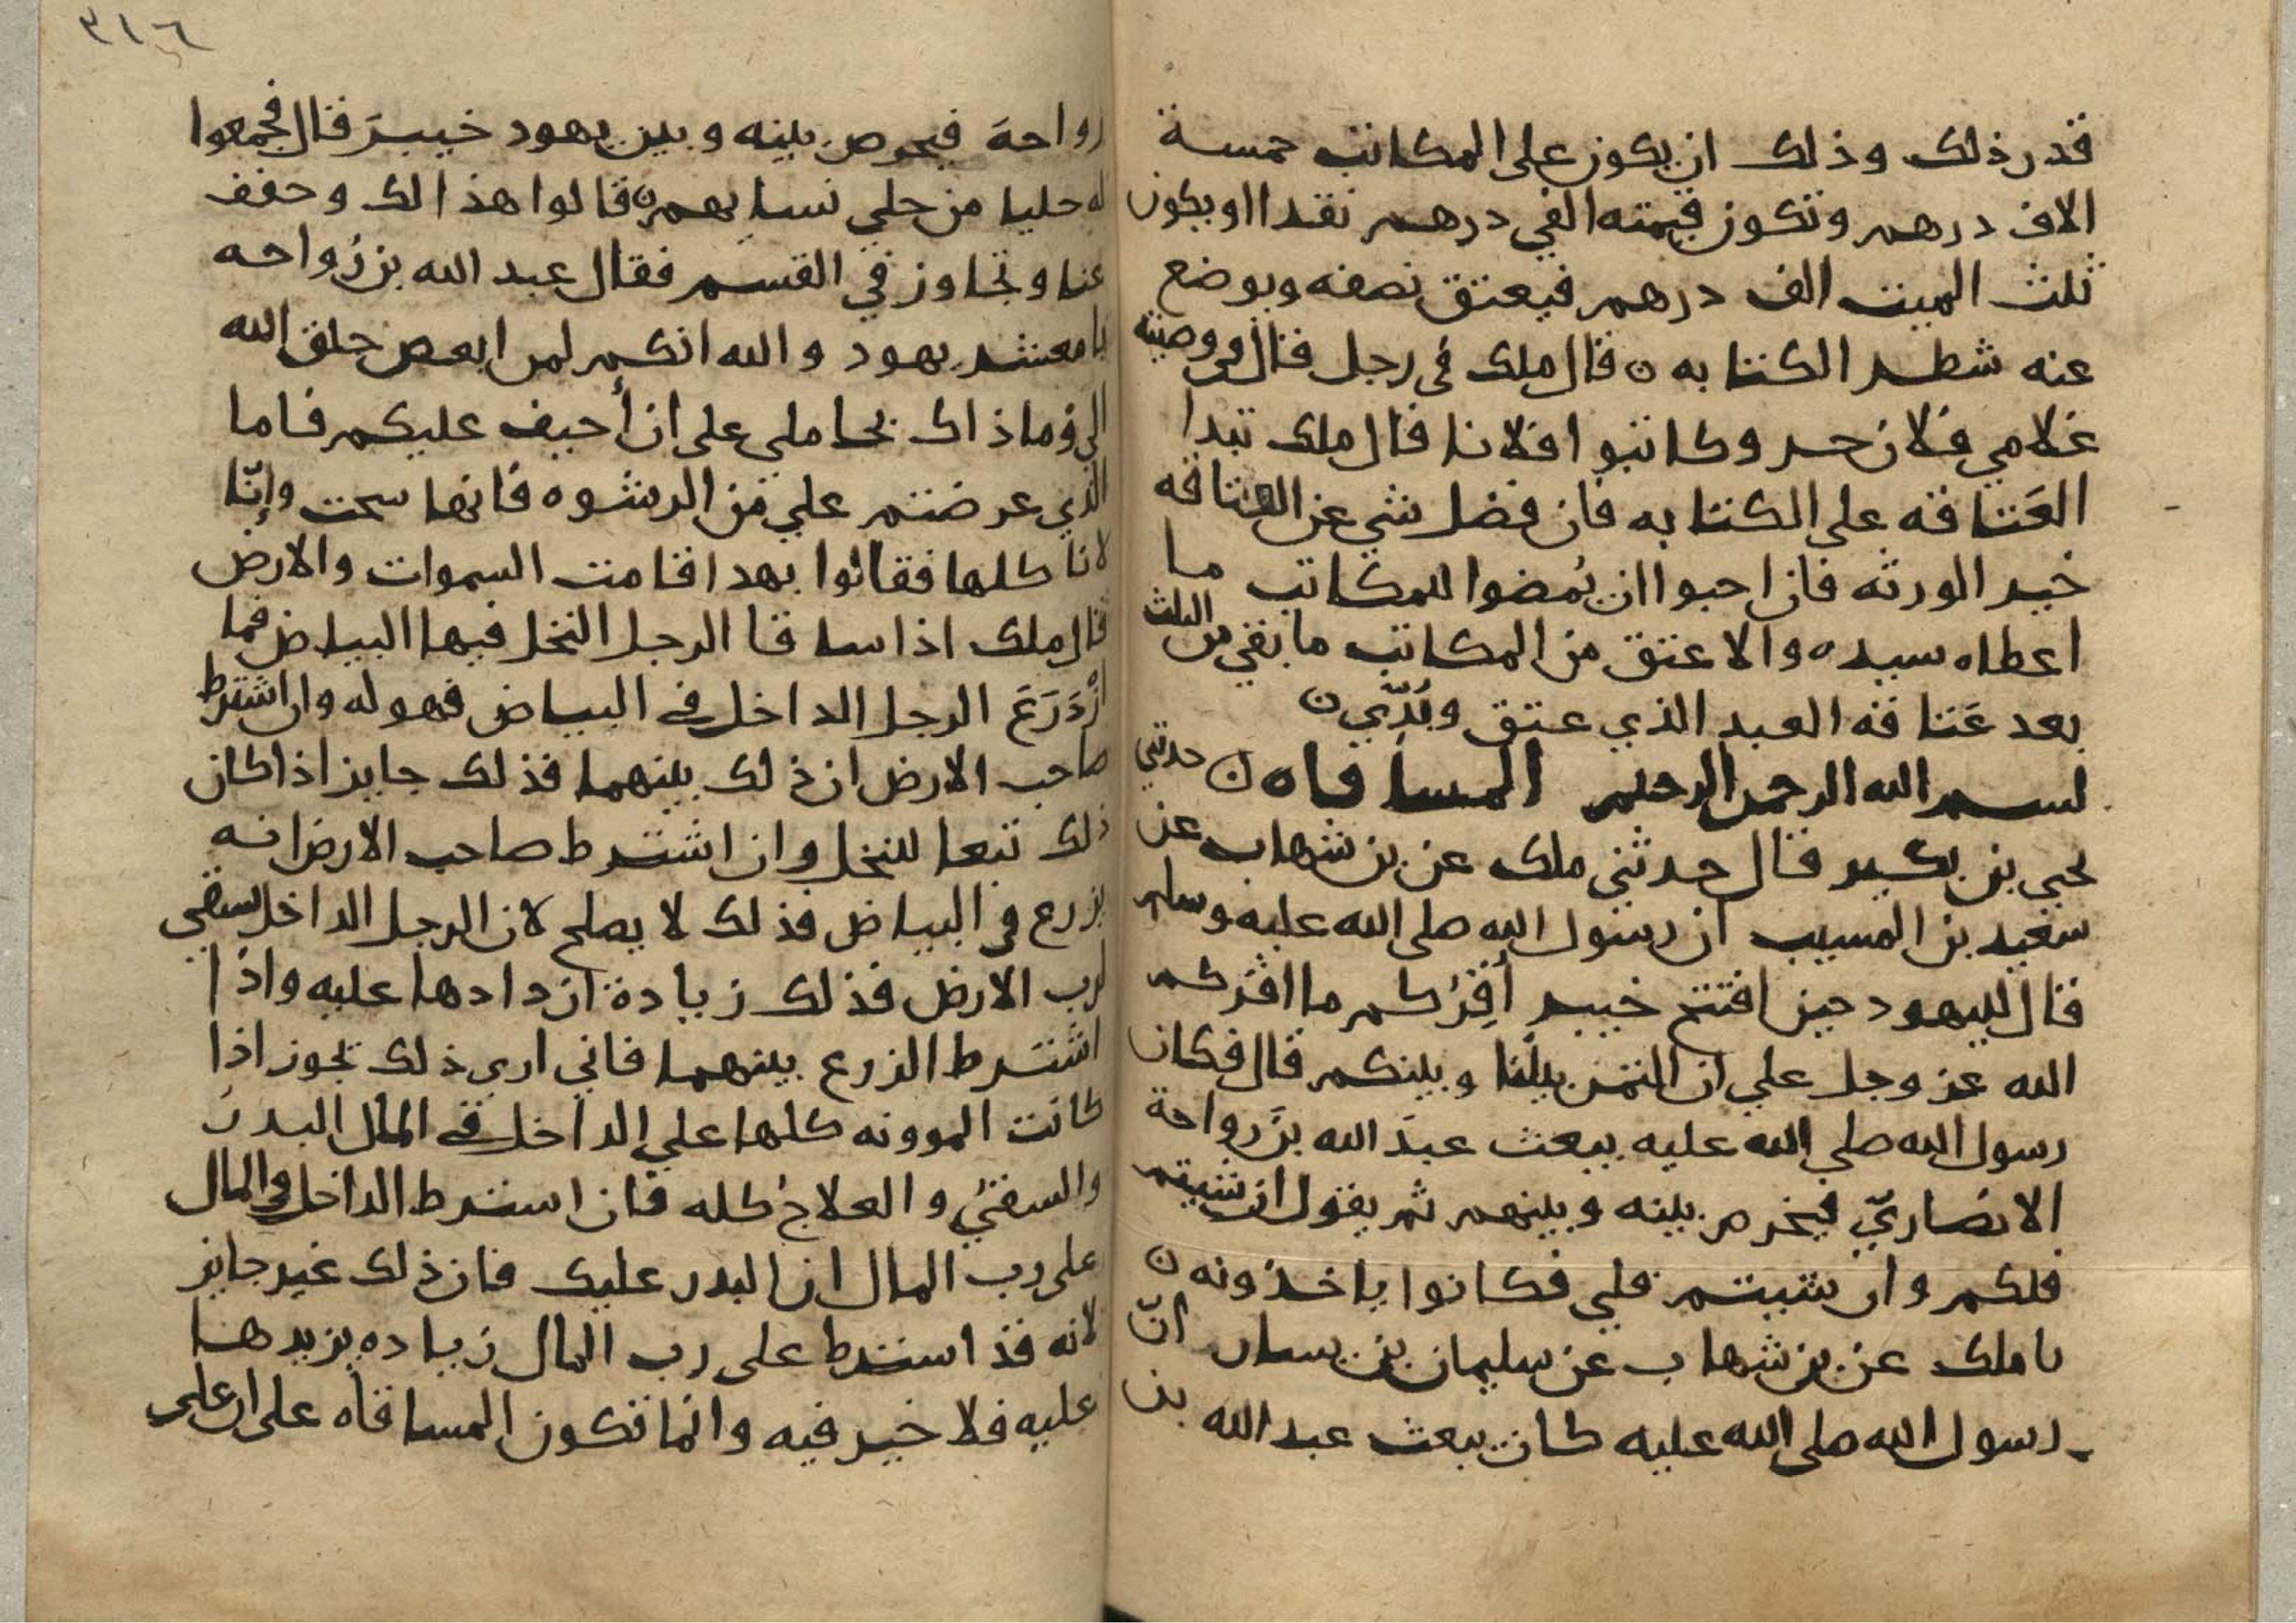 قدر ذلك وذلك ان يكون على المكاتب خمسة
الاف درهم وتكون قيمته الفي درهم نقدا او يكون
ثلث الميت الف درهم فيعتق نصفه ويوضع
عنه شطر الكتابه ن قال ملك في رجل قال في وصيته
غلامي فلان حر وكاتبوا فلانا قال ملك تبدا
العَتاقه على الكتابه فان فضل شي عن العتاقه
خير الورثه فان احبوا ان يُمضوا للمكاتب ما
اعطاه سيده والا عتق من المكاتب ما بقي من الثلث
بعد عَتاقه العبد الذي عتق وبُدّي ن
بسم الله الرحمن الرحيم المساقاه ن حدثني
يحيي بن بكير قال حدثني ملك عن بن شهاب عن
سعيد بن المسيب ان رسول الله صلى الله عليه وسلم
قال لليهود حين افتتح خيبر أُقِرُكم ما اقركم
الله عز وجل علي ان الثمر بيننا وبينكم قال فكان
رسول الله صلي الله عليه يبعث عبدَ الله بنَ رواحة
الانصاريّ فيخرص بينه وبينهم ثم يقول ان شيتم
فلكم وان شيتم فلي فكانوا ياخذونه ن
نا ملك عن بن شهاب عن سليمان بن يسار انّ
رسول الله صلى الله عليه كان يبعث عبد الله بن
٣١٦
رواحةَ فيخرص بينه وبين يهود خيبرَ قال فجمعوا
له حليا من حلي نسايهم ن قالوا هذا لك وخفف
عنا وتجاوز في القسم فقال عبد الله بن رُواحه
يا معشر يهود والله انكم لمن ابغض خلق الله
الي وما ذاك بحاملي على ان أحيف عليكم فاما
الذي عرضتم علي من الرشوه فانها سحت وإنّا
لا ناكلها فقالوا بهذا قامت السموات والارض
قال ملك اذا ساقا الرجل النخل فيها البياض فما
ازْدَرَعَ الرجل الداخل في البياض فهو له وان اشترط
صاحب الارض ان ذلك بينهما فذلك جايز اذا كان
ذلك تبعا للنخل وان اشترط صاحب الارض انه
يزرع في البياض فذلك لا يصلح لان الرجل الداخل يسقي
لرب الارض فذلك زيادة ازدادها عليه واذا
اشترط الزرع بينهما فاني ارى ذلك يجوز اذا
كانت الموونه كلها علي الداخل في المال البدرُ
والسقيُ والعلاجُ كله فان استرط الداخل في المال
على رب المال ان البدر عليك فان ذلك غير جايز
لانه قد استرط على رب المال زياده يزيدها
عليه فلا خير فيه وانما تكون المساقاه على ان على